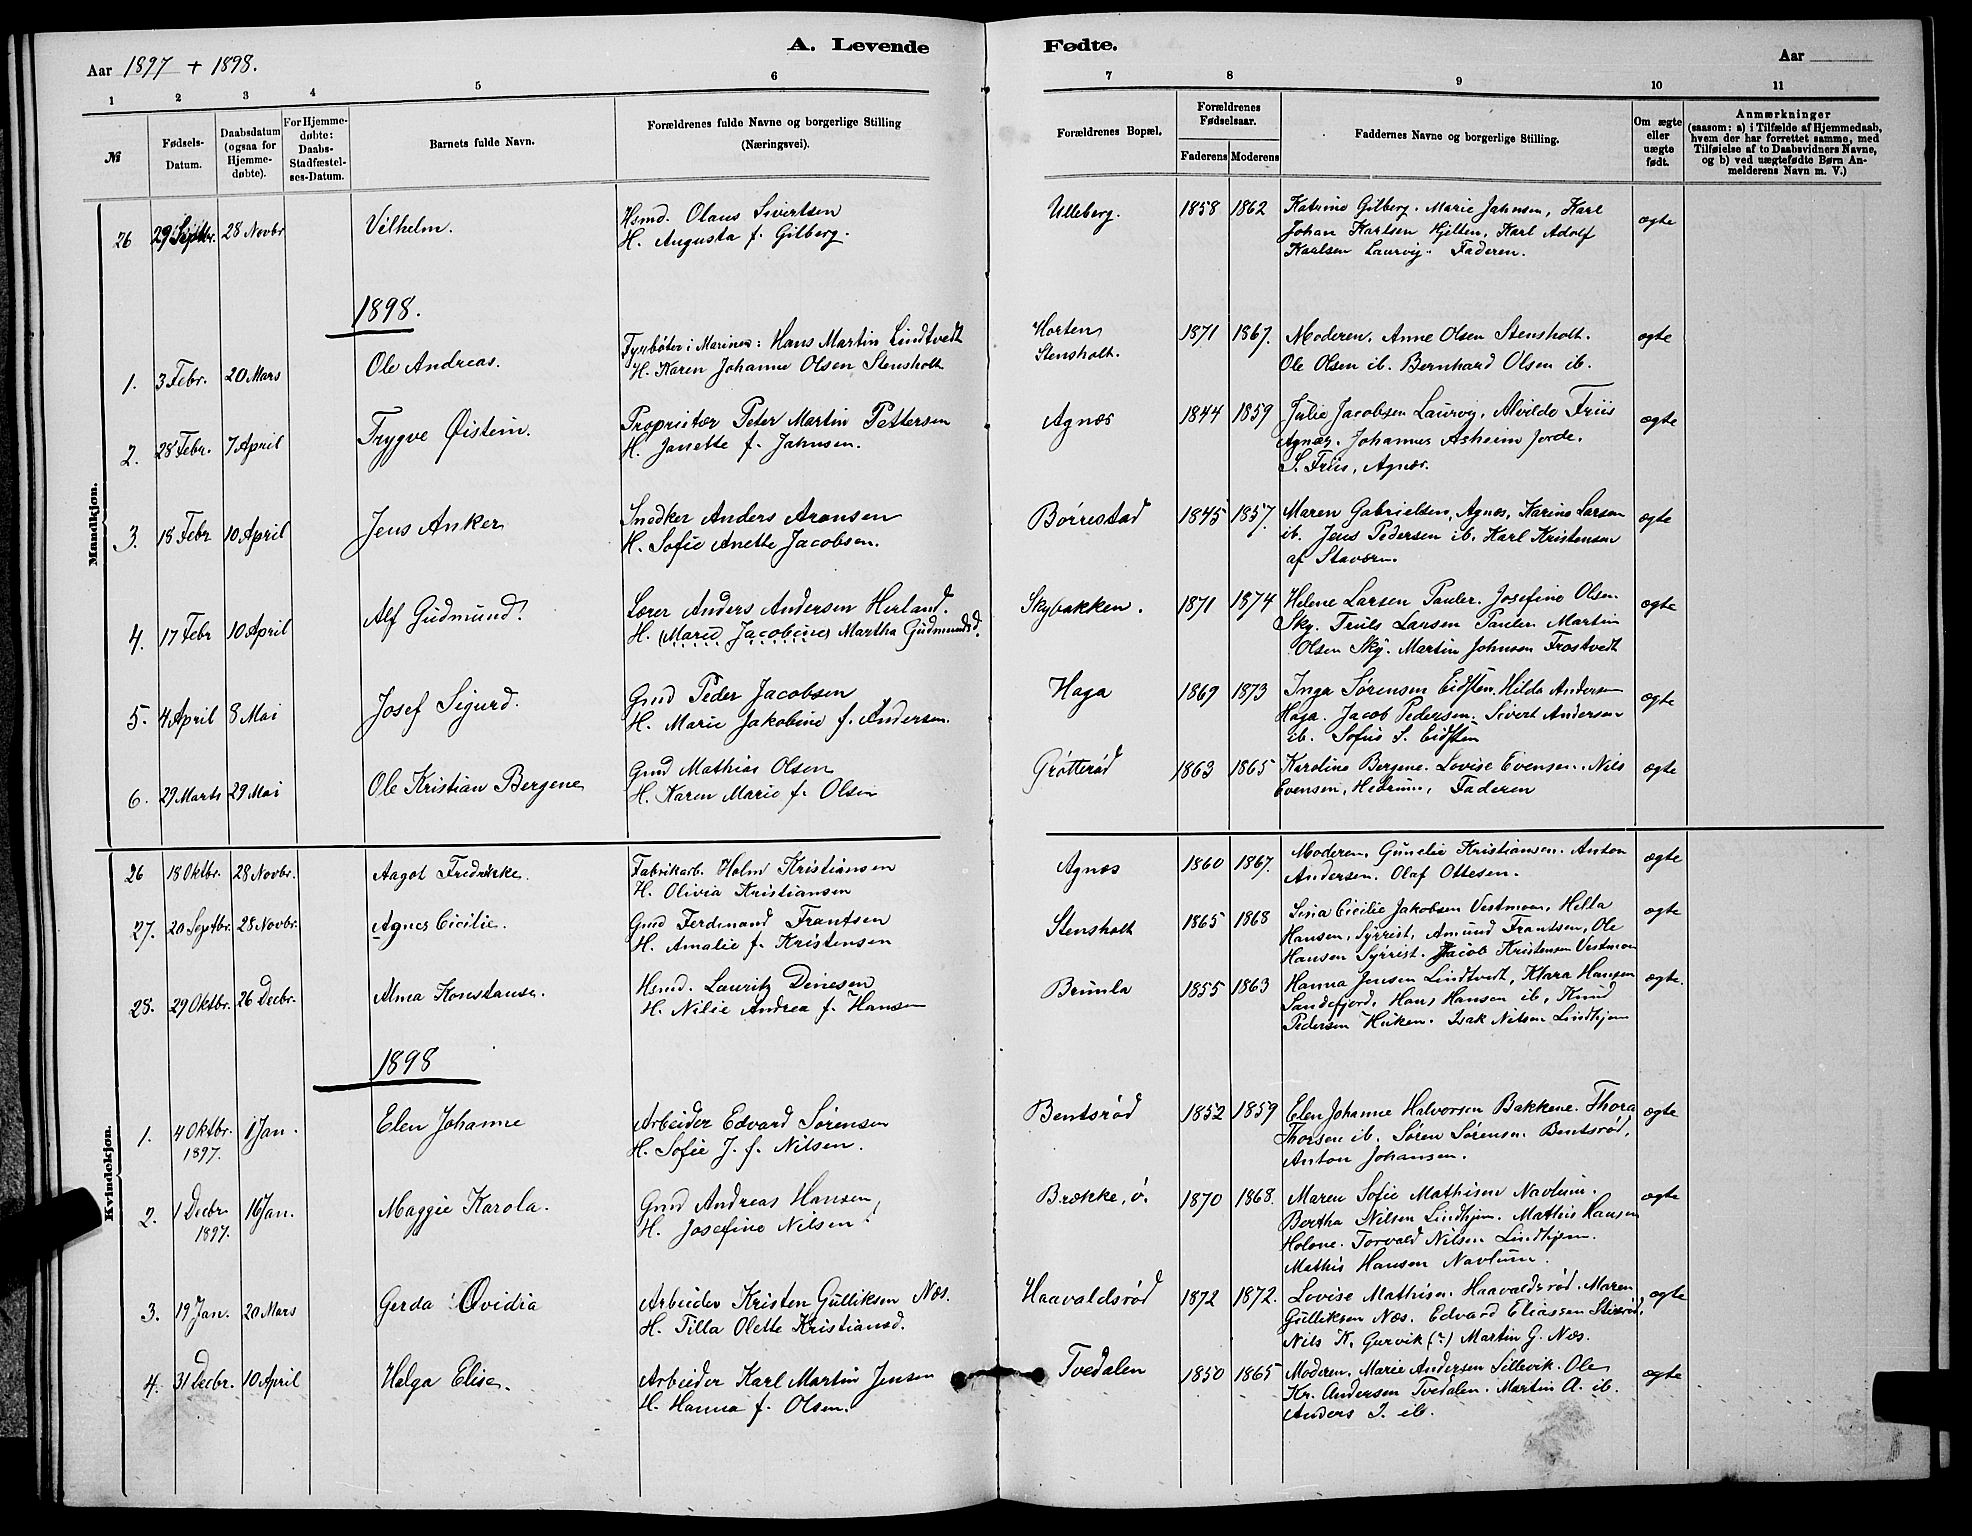 A. Levende Fødte.
Aar 1897 + 1898. Aar
1 2 3 4 5 6 7 8 9 10 11
№
Fødsels-Datum.
Daabsdatum (ogsaa for Hjemme-døbte).
For Hjemme-døbte: Daabs-Stadfæstel-ses-Datum.
Barnets fulde Navn.
Forældrenes fulde Navne og borgerlige Stilling (Næringsvei).
Forældrenes Bopæl.
Forældrenes Fødselsaar.
Faderens Moderens
Faddernes Navne og borgerlige Stilling.
Om ægte eller uægte født.
Anmærkninger
(saasom: a) i Tilfælde af Hjemmedaab, hvem der har forrettet samme, med Tilføielse af to Daabsvidners Navne, og b) ved uægtefødte Børn Anmelderens Navn m. V.)
Mandkjøn.
26 29 Septbr. 28 Novbr Vilhelm. Hsmd. Olaus Sivertsen Ulleberg. 1858 1862 Katrine Gilberg. Marie Jahnsen, Karl ægte
H. Augusta f. Gilberg. Johan Karlsen Hjelten, Karl Adolf
Karlsen Laurvig. Faderen.
1898.
1. 3 Febr. 20 Mars Ole Andreas. Fyrbøter i Marinen: Hans Martin Lindtvedt Horten, 1871 1867. Moderen, Anne Olsen Stensholt. ægte
H. Karen Johanne Olsen Stensholt Stensholt. Ole Olsen ib. Bernhard Olsen ib.
2. 28 Febr. 7 April Trygve Øistein. Proprietær Peter Martin Pettersen Agnæs 1844 1859 Julie Jacobsen Laurvig, Alvilde Friis ægte
H. Janette f. Jahnsen. Agnæs. Johannes Asheim Jorde.
S. Friis, Agnæs.
3. 18 Febr 10 April Jens Anker Snedker Anders Aronsen Børrestad 1845 1857. Maren Gabrielsen, Agnes, Karine Larsen ægte
H. Sofie Anette Jacobsen. ib. Jens Pedersen ib. Karl Kristensen
af Stavern.
4. 17 Febr 10 April Alf Gudmund. Lærer Anders Andersen Herland. Skybakken. 1871 1874 Helene Larsen Pauler. Josefine Olsen ægte
H. (Marie Jacobine) Martha Gudmundsd. Sky. Truls Larsen Pauler. Martin
Olsen Sky. Martin Johnsen Frostvedt
5. 4 April 8 Mai Josef Sigurd. Gmd Peder Jacobsen Haga 1869 1873 Inga Sørensen Eidsten, Hilda Andersen ægte
H. Marie Jakobine f. Andersen. Haga. Jacob Pedersen. Sivert Andersen
ib. Sofus S. Eidsten
6. 29 Marts 29 Mai Ole Kristian Bergene Gmd Mathias Olsen Grøtterød 1863 1865 Karoline Bergene. Lovise Evensen. Nils ægte
H. Karen Marie f. Olsen Evensen, Hedrum, Faderen
Kvindekjøn.
26 18 Oktbr. 28 Novbr. Aagot Fredrikke. Fabrikarb. Holm Kristiansen Agnæs 1860 1867. Moderen, Gunelie Kristiansen. Anton ægte
H. Olivia Kristiansen Andersen. Olaf Ottesen.
27. 20 Septbr. 28 Novbr. Agnes Cicilie. Gmd Ferdinand Frantsen Stensholt 1865 1868 Sina Cicilie Jakobsen Vestmoen, Hella ægte
H. Amalie f. Kristensen Hansen, Syrrist, Amund Frantsen, Ole
Hansen Syrrist. Jacob Kristensen Vestmoen
28. 29 Oktbr. 26 Decbr. Alma Konstanse. Hsmd. Lauritz Dinesen Brunla 1855 1863 Hanna Jensen Lindtvedt, Klara Hansen ægte.
H. Nilie Andrea f. Hansen Sandefjord, Hans Hansen ib, Knud
Pedersen Huken. Isak Nilsen Lindhjem
1898
1. 4 Oktbr. 1897. 1 Jan. Elen Johanne Arbeider Edvard Sørensen Bentsrød 1852 1859 Elen Johanne Halvorsen Bakkene. Thora ægte
H. Sofie J. f. Nilsen. Thorsen ib. Søren Sørensen Bentsrød,
Anton Johansen.
2. 1 Decbr. 1897. 16 Jan. Maggie Karola. Gmd Andreas Hansen Brække, ø. 1870 1868. Maren Sofie Mathisen Navlum. ægte
H. Josefine Nilsen Bertha Nilsen Lindhjem. Mathis Hansen
Holone. Torvald Nilsen Lindhjem.
Mathis Hansen Navlum.
3. 19 Jan. 20 Mars Gerda Ovidia Arbeider Kristen Gulliksen Næs. Haavaldsrød 1872 1872. Lovise Mathisen Haavaldsrød. Maren ægte
H. Tilla Olette Kristiansd. Gulliksen Næs. Edvard Eliassen
Nils K. Gurvik (?) Martin G. Næs.
4. 31 Decbr. 10 April Helga Elise. Arbeider Karl Martin Jensen Tvedalen 1850 1865 Moderen. Marie Andersen Sillevik. Ole ægte
H. Hanna f. Olsen. Kr. Andersen Tvedalen. Martin A. ib.
Anders J. ib.